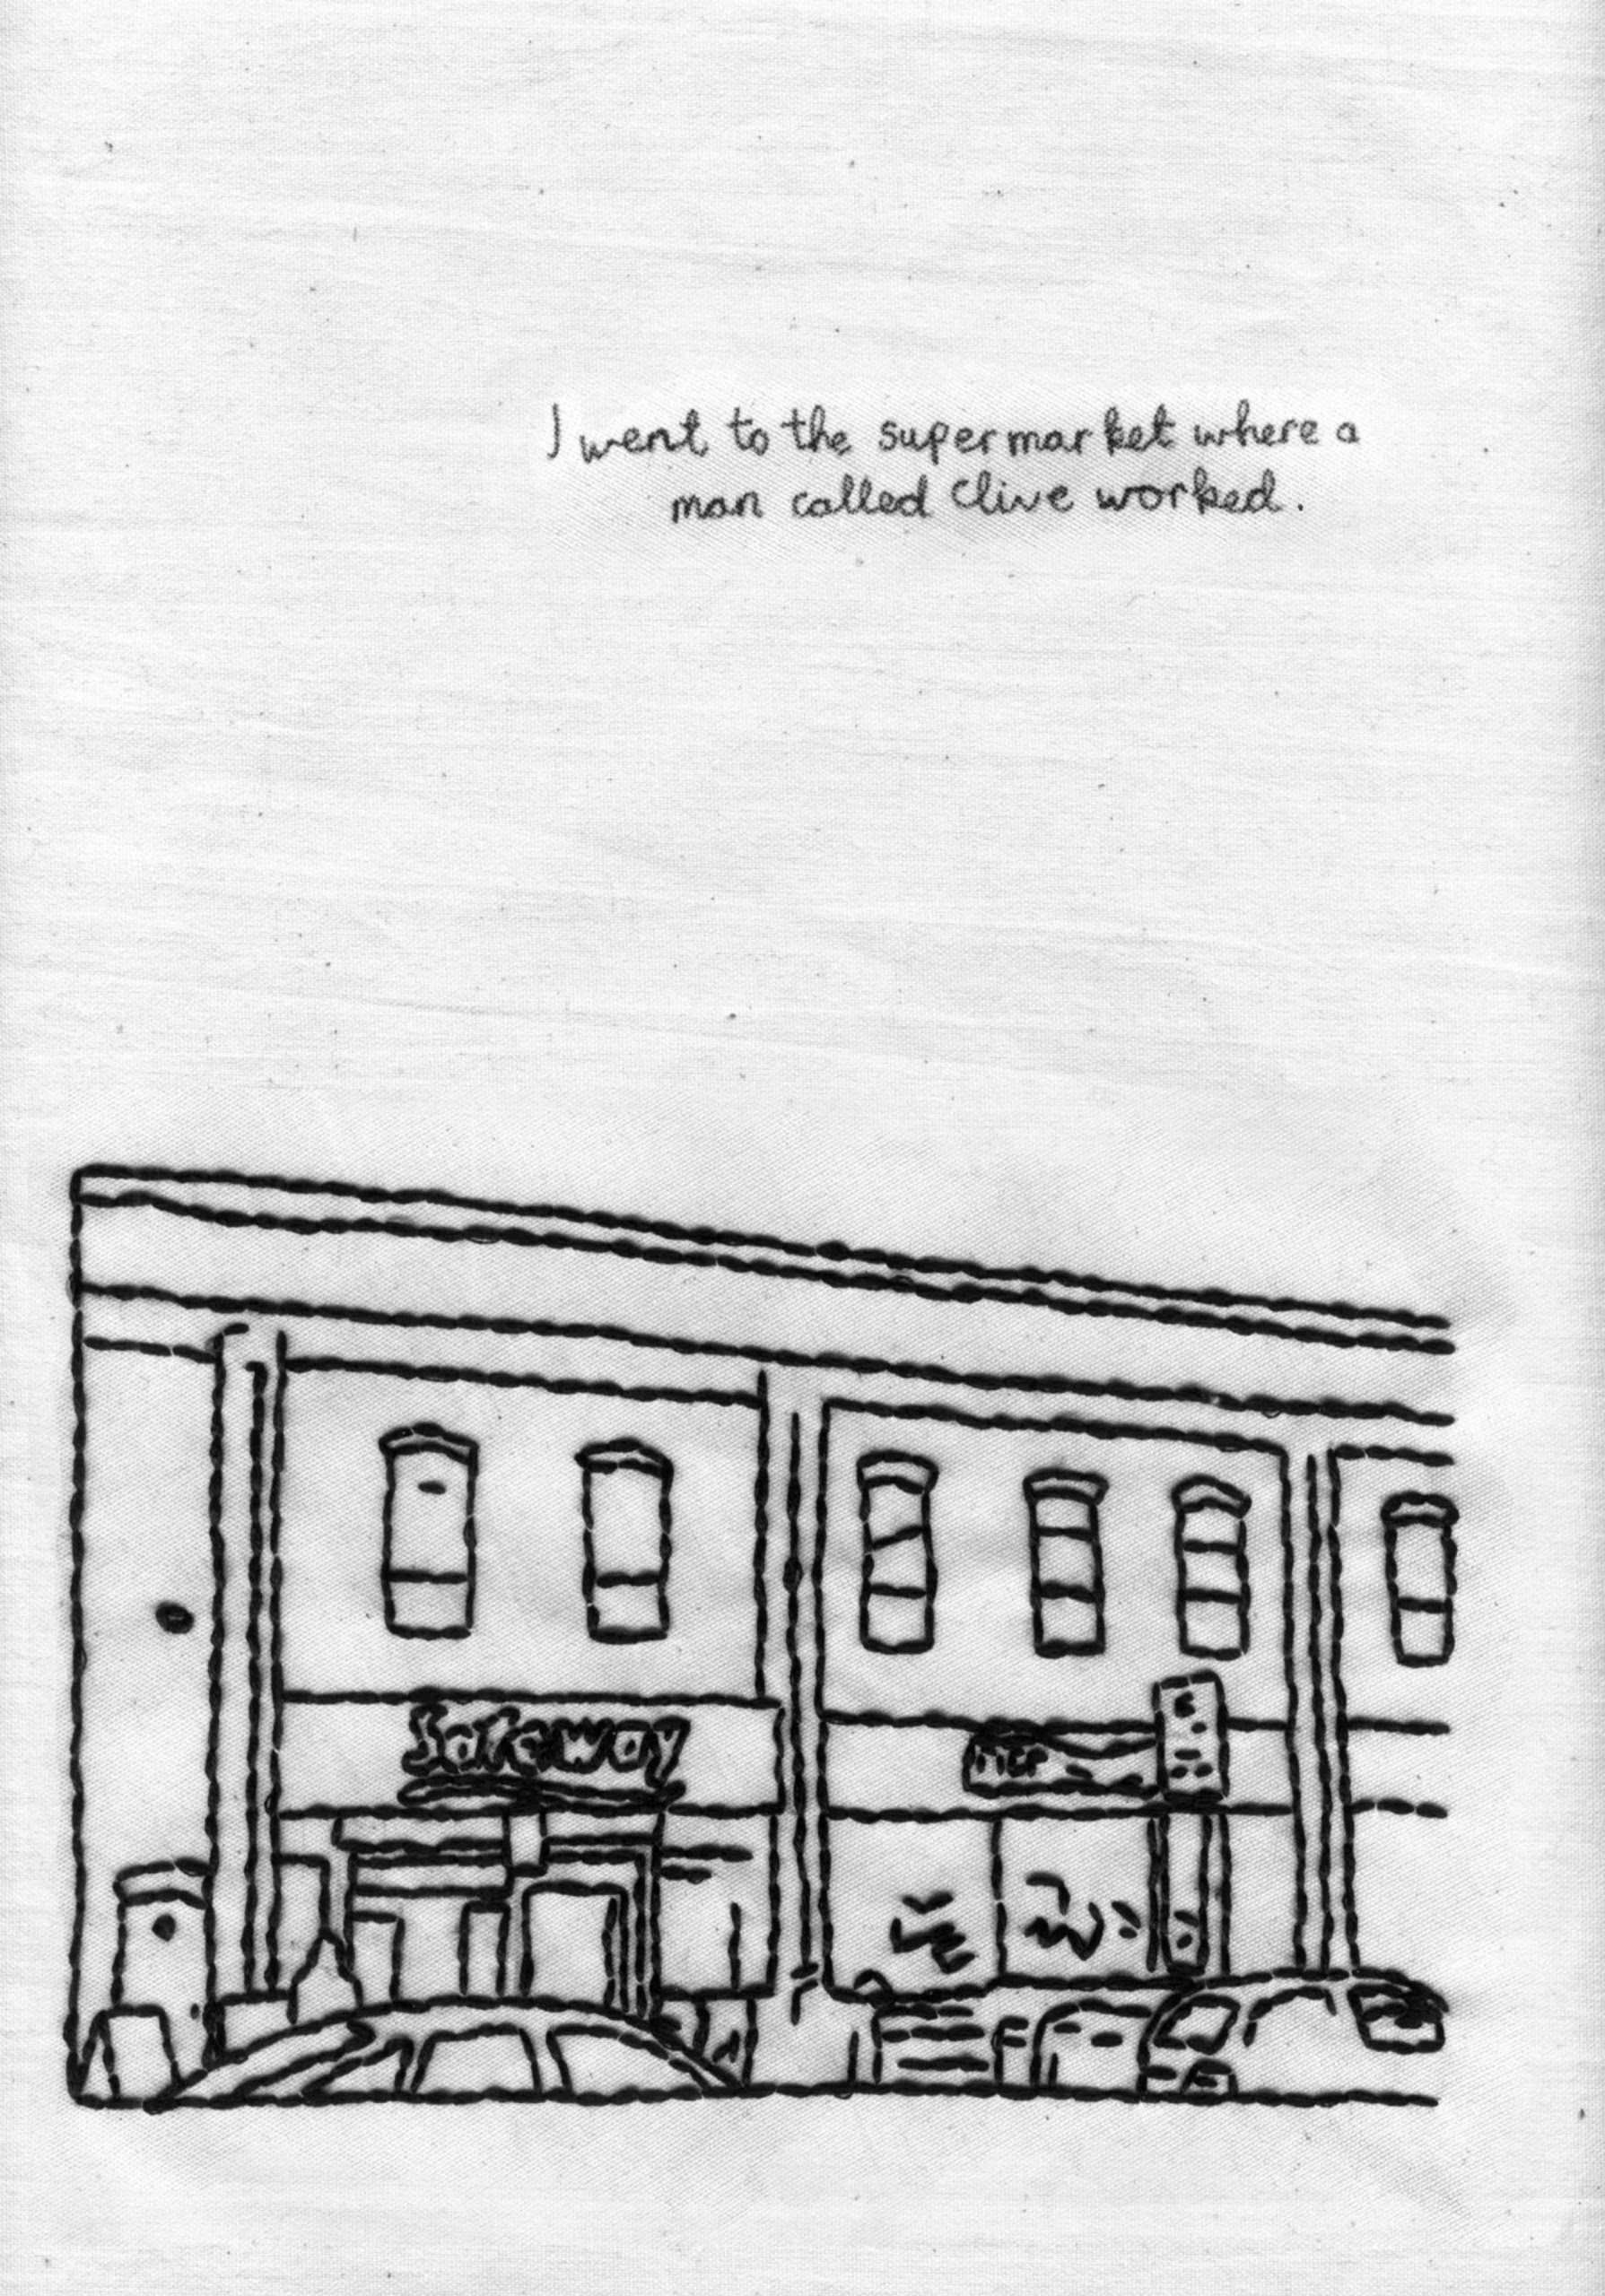 I went to the supermarket where a
man called Clive worked.
Safeway